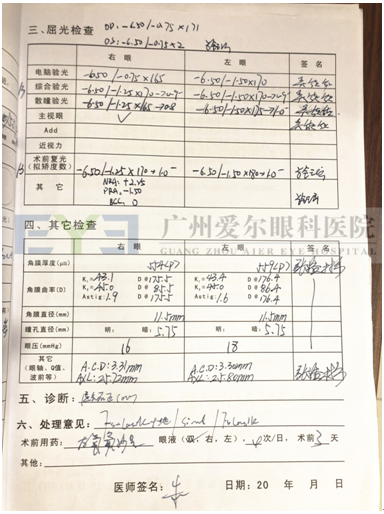 三、屈光检查 OD: -6.50/-0.75×171
OS: -6.50/-0.75×2
右眼 左眼 签名
电脑验光 -6.50/-0.75×165 -6.50/-1.50×170
综合验光 -6.50/-1.25×170 -6.50/-1.50×170
散瞳验光 -6.50/-1.25×165 -6.50/-1.50×175
主视眼 ✓
Add
近视力
术前复光 -6.50/-1.25×170 -6.50/-1.50×180
(拟矫度数)
其它 NRA: +2.25
PRA: -1.50
BCC: 0
EYE 广州爱尔眼科医院
GUANG ZHOU AIER EYE HOSPITAL
四、其它检查
右眼 左眼 签名
角膜厚度(μm) 554 559
角膜曲率(D) K₁=43.1 D@175.5 K₁=43.4 D@176.4
K₂=45.0 D@85.5 K₂=45.0 D@86.4
Astig: 1.9 D@175.5 Astig: 1.6 D@176.4
角膜直径(mm) 11.5mm 11.5mm
瞳孔直径(mm) 明: 暗: 5.75 明: 暗: 5.75
眼压(mmHg) 16 18
其它
(眼轴、Q值、 A.C.D: 3.31mm A.C.D:
波前等) AXL: 25.72mm AXL: 25.80mm
五、诊断: 屈光不正(ou)
六、处理意见:
术前用药: 眼液(双,右,左), 4次/日, 术前3天
其他:
医师签名: 日期: 20 年 月 日